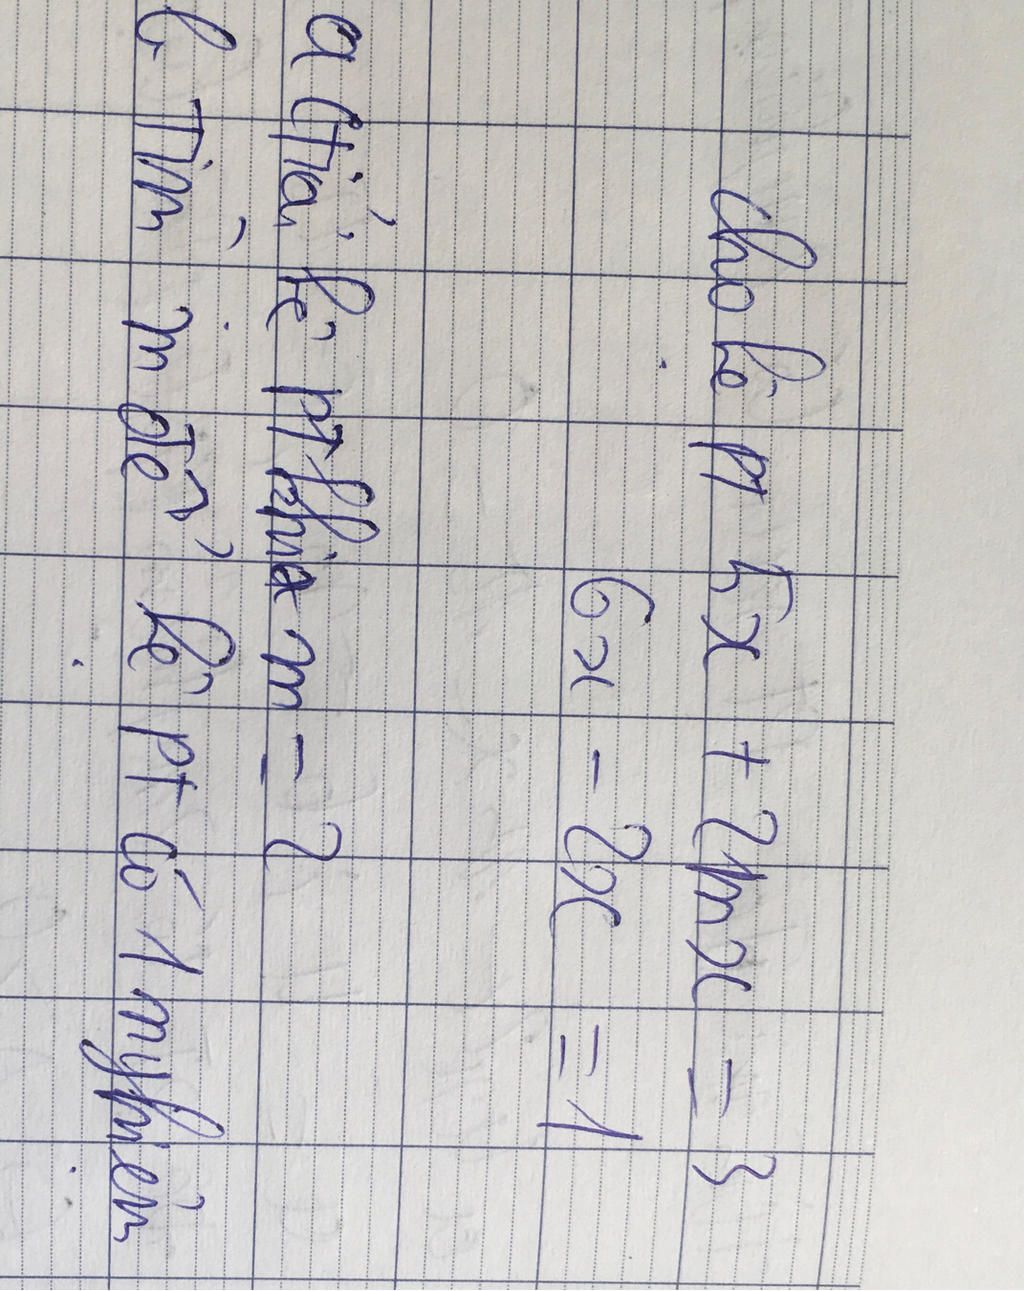 cho hệ pt 5x + 2mx = 3
6x - 2x = 1
a Giải hệ pt khi m = 2
b Tìm m để hệ pt có 1 nghiệm